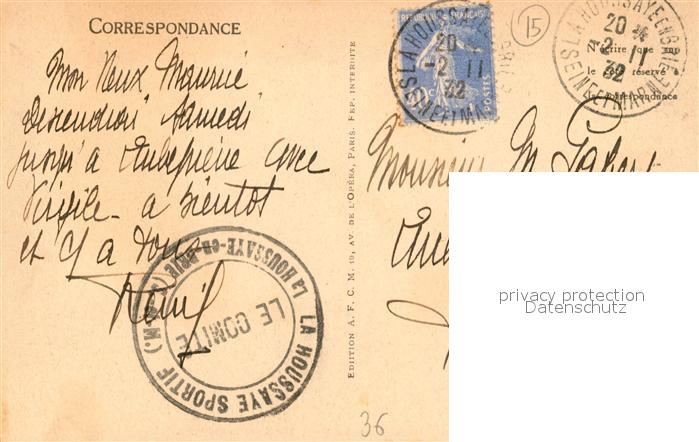 CORRESPONDANCE
Mon Vieux Maurice
Descendrai Samedi
jusqu'à Aubepierre avec
Virgile - a bientot
et Cy a vous
LA HOUSSAYE SPORTIF
LA HOUSSAYE-en-BRIE (S.-&-M.)
LE COMITÉ
EDITION A. F. C. M. 19, AV. DE L'OPÉRA, PARIS. REP. INTERDITE
REPUBLIQUE FRANÇAISE
POSTES
LA HOUSSAYE
20
-2 11
32
SEINE ET M
15
LA HOUSSAYE EN BRIE
20
2 11
32
SEINE ET MARNE
N'écrire que sur
le côté réservé à
la correspondance
Monsieur M
36
privacy protection
Datenschutz